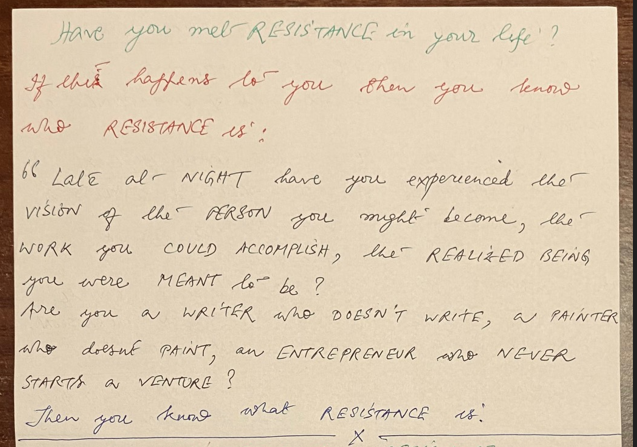 Have you met RESISTANCE in your life?
If this happens to you then you know
who RESISTANCE is:
"Late at NIGHT have you experienced the
VISION of the PERSON you might become, the
WORK you COULD ACCOMPLISH, the REALIZED BEING
you were MEANT to be?
Are you a WRITER who DOESN'T WRITE, a PAINTER
who doesnt PAINT, an ENTREPRENEUR who NEVER
STARTS a VENTURE?
Then you know what RESISTANCE is.
X